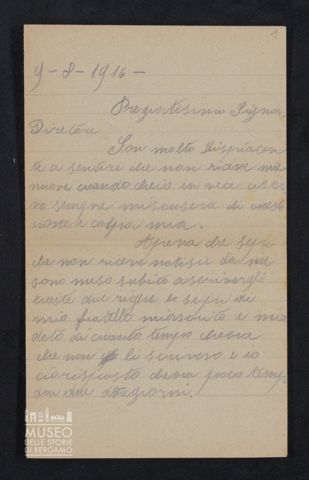 1
9-8-1916-
Pregiatisimo Signor
Diretore
Son molto dispiacen
te a sentire che non riceve mie
nuove quando che io in vece
vo sempre mi scusera di
non e colpa mia.
Apena che sepi
che non riceve notisie da me
sono meso subito a scrivergli
queste due righe lo sepi di
mio fratello mi scrisse e mia
deto di quanto tempo che era
che non li scrivevo e io
ciorisposto che era poco temp
giorni.
MUSEO
DELLE STORIE
DI BERGAMO